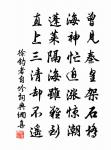 曾見秦皇架石橋
海神忙迫漲驚潮
蓬萊隔海雖難到
直上三清却不遙
徐鈞者自吟
詩典網書